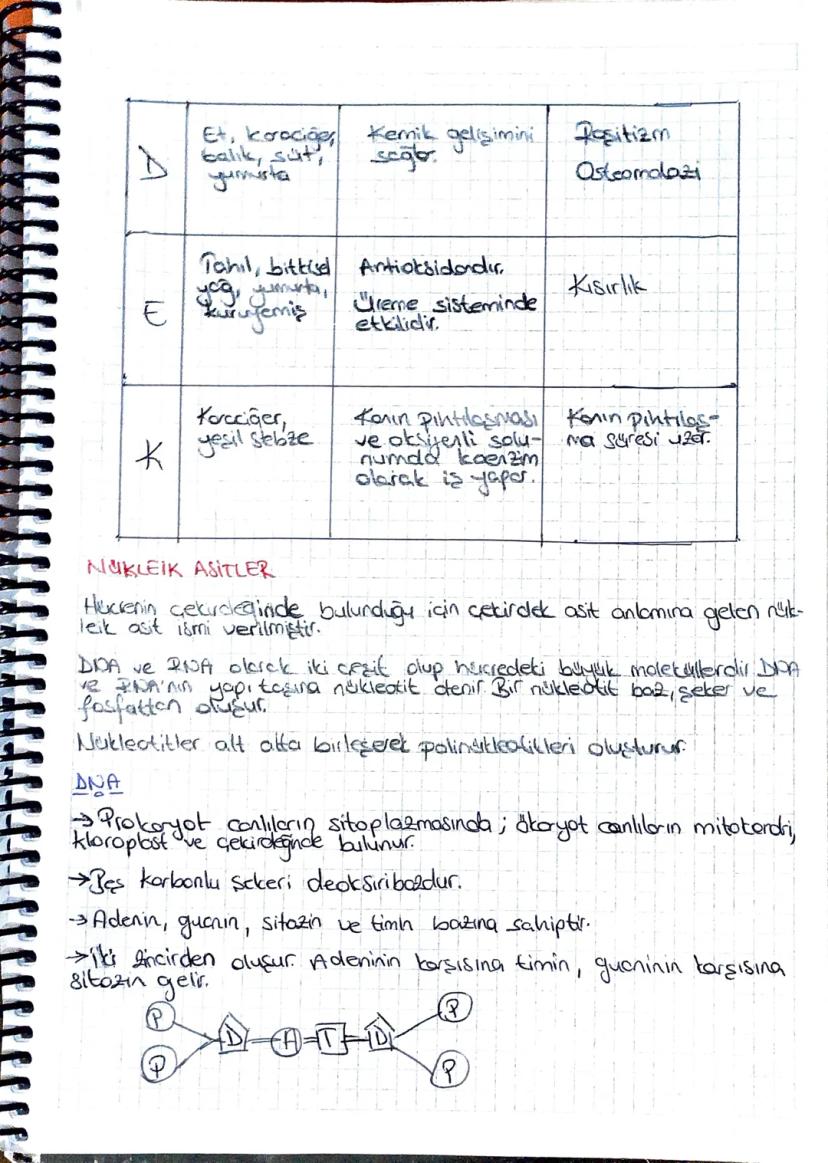 D
Et, karaciğer,
balık, süt,
yumurta
Kemik gelişimini
sağlar.
Raşitizm
Osteomalazi
E
Tahıl, bitkisel
yağ, yumurta,
kuruyemiş
Antioksidandır.
Üreme sisteminde
etkilidir.
Kısırlık
K
Karaciğer,
yeşil sebze
Kanın pıhtılaşması
ve oksijenli solu-
numda koenzim
olarak iş yapar.
Kanın pıhtılaş-
ma süresi uzar.
NÜKLEİK ASİTLER
Hücrenin çekirdeğinde bulunduğu için çekirdek asit anlamına gelen nük-
leik asit ismi verilmiştir.
DNA ve RNA olarak iki çeşit olup hücredeki büyük moleküllerdir. DNA
ve RNA'nın yapı taşına nükleotit denir. Bir nükleotit baz, şeker ve
fosfattan oluşur.
Nükleotitler alt alta birleşerek polinükleotitleri oluşturur.
DNA
→ Prokaryot canlıların sitoplazmasında; ökaryot canlıların mitokondri,
kloroplast ve çekirdeğinde bulunur.
→ Beş karbonlu şekeri deoksiribozdur.
→ Adenin, guanin, sitozin ve timin bazına sahiptir.
→ İki zincirden oluşur. Adeninin karşısına timin, guaninin karşısına
sitozin gelir.
P P
D A T D
P P